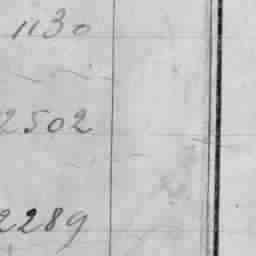 1130
2502
2289